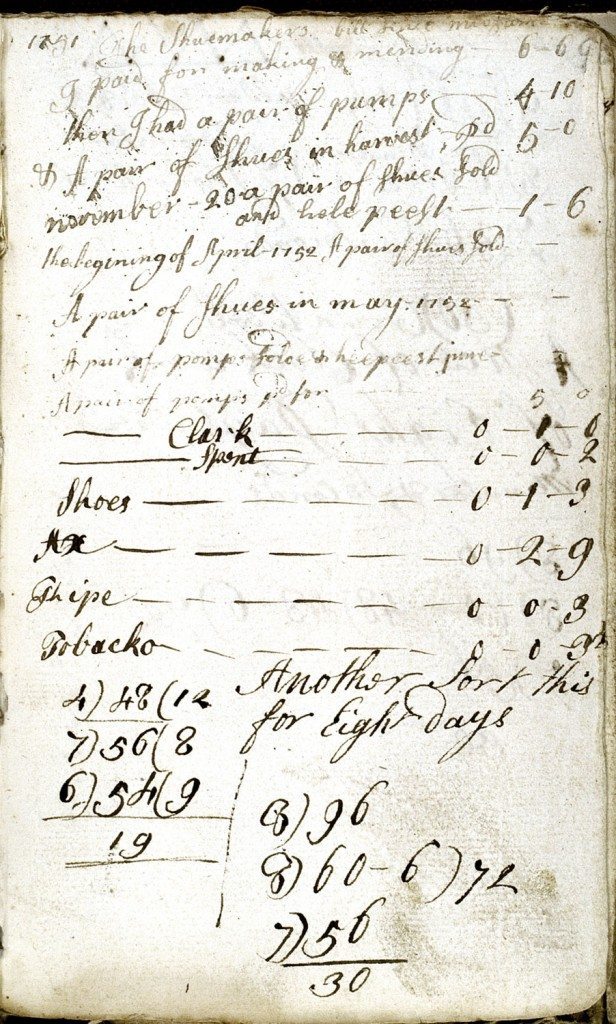 The Shuemakers
I paid for making & mending — 6-6
then I had a pair of pumps 4 10
& A pair of Shues in harvest, pd 5-0
november-20 a pair of shues Sold
and hele peest — 1-6
the begining of April-1752 A pair of Shues Sold —
A pair of Shues in may-1752 - -
A pair of pomps June
A pair of pomps pd for 5 0
— Clark — — — — 0-1-0
— Spent — — — 0-0-2
Shoes — — — — — 0-1-3
Ax — — — — — 0-2-9
— — — — 0 0 3
Tobacko — — — — 0 0
4) 48 (12 Another Sort this
7) 56 (8 for Eigh days
6) 54 (9
19
8) 96
8) 60-6) 72
7) 56
30